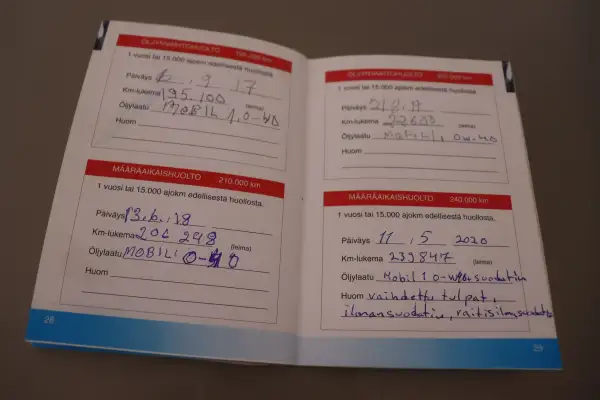 ÖLJYNVAIHTOHUOLTO 195.000 km
1 vuosi tai 15.000 ajokm edellisestä huollosta.
Päiväys 6.9 17
Km-lukema 195.100
(leima)
Öljylaatu MOBIL 1, 0-40
Huom
MÄÄRÄAIKAISHUOLTO 210.000 km
1 vuosi tai 15.000 ajokm edellisestä huollosta.
Päiväys 13.6.18
Km-lukema 206 248
(leima)
Öljylaatu MOBIL 0-40
Huom
28
ÖLJYNVAIHTOHUOLTO
1 vuosi tai 15.000 ajokm edellisestä huollosta.
Päiväys
Km-lukema
(leima)
Öljylaatu MOBIL 1, 0W-40
Huom
MÄÄRÄAIKAISHUOLTO 240.000 km
1 vuosi tai 15.000 ajokm edellisestä huollosta.
Päiväys 11.5 2020
Km-lukema 239847
(leima)
Öljylaatu Mobil 1 suodatin
Huom vaihdettu tulpat,
ilmansuodatin, raitisilmasuodatin
29